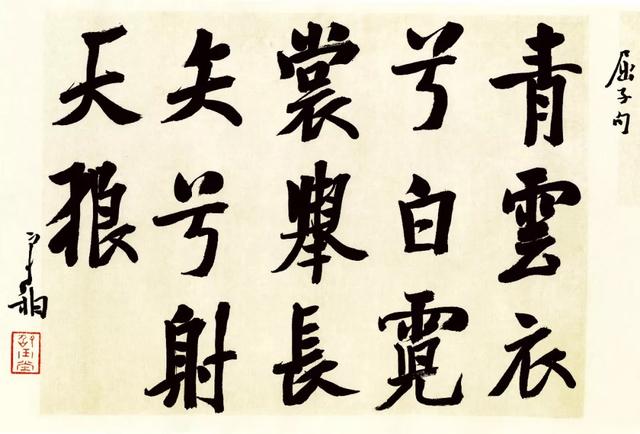 屈子句
青雲衣
兮白霓
裳舉長
矢兮射
天狼